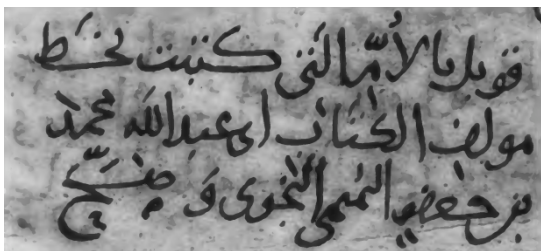 قوبل بالأمّ التي كتبت بخط
مولف الكتاب ابي عبد الله محمد
بن جعفر التميمي النحوي وصحّ